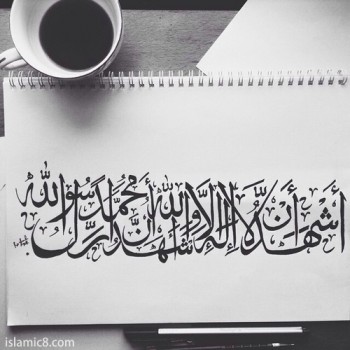 أشهد أن لا إله إلا الله وأشهد أن محمدا رسول الله
islamic8.com